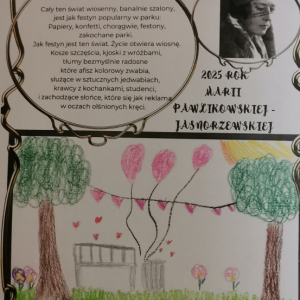 Cały ten świat wiosenny, banalnie szalony,
jest jak festyn popularny w parku:
Papiery, konfetti, chorągwie, festony,
zakochane parki.
Jak festyn jest ten świat. Życie otwiera wiosnę.
Kosze szczęścia, kjoski z wróżbami,
tłumy bezmyślnie radosne
które afisz kolorowy zwabia,
służące w sztucznych jedwabiach,
krawcy z kochankami, studenci,
i zachodzące słońce, które się jak reklama
w oczach olśnionych kręci.
2025 ROK
MARII
PAWLIKOWSKIEJ -
JASNORZEWSKIEJ